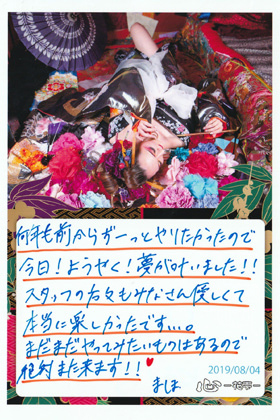 何年も前からずーっとやりたかったので
今日！ようやく！夢が叶いました！！
スタッフの方々もみなさん優しくて
本当に楽しかったです…。
まだまだやってみたいものはあるので
絶対また来ます！！
2019/08/04
ましま